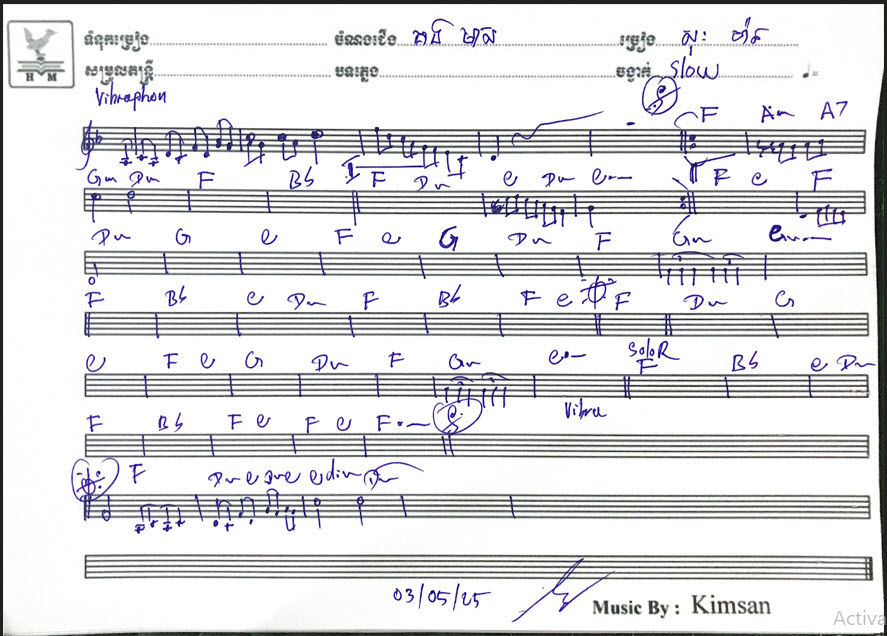 ទំនុកច្រៀង ចំណងជើង គង់ មាស ច្រៀង សុៈ ម៉ាត
សម្រួលតន្ត្រី បទភ្លេង ចង្វាក់ Slow
H M
Vibraphon
F Am A7
Gm Dm F Bb F Dm C Dm C F C F
Dm G C F C G Dm F Gm C
F Bb C Dm F Bb F C F Dm G
C F C G Dm F Gm C Solo R F Bb C Dm
Vibra
F Bb F C F C F
F Dm C C dim Dm
03/05/25
Music By : Kimsan
Activa